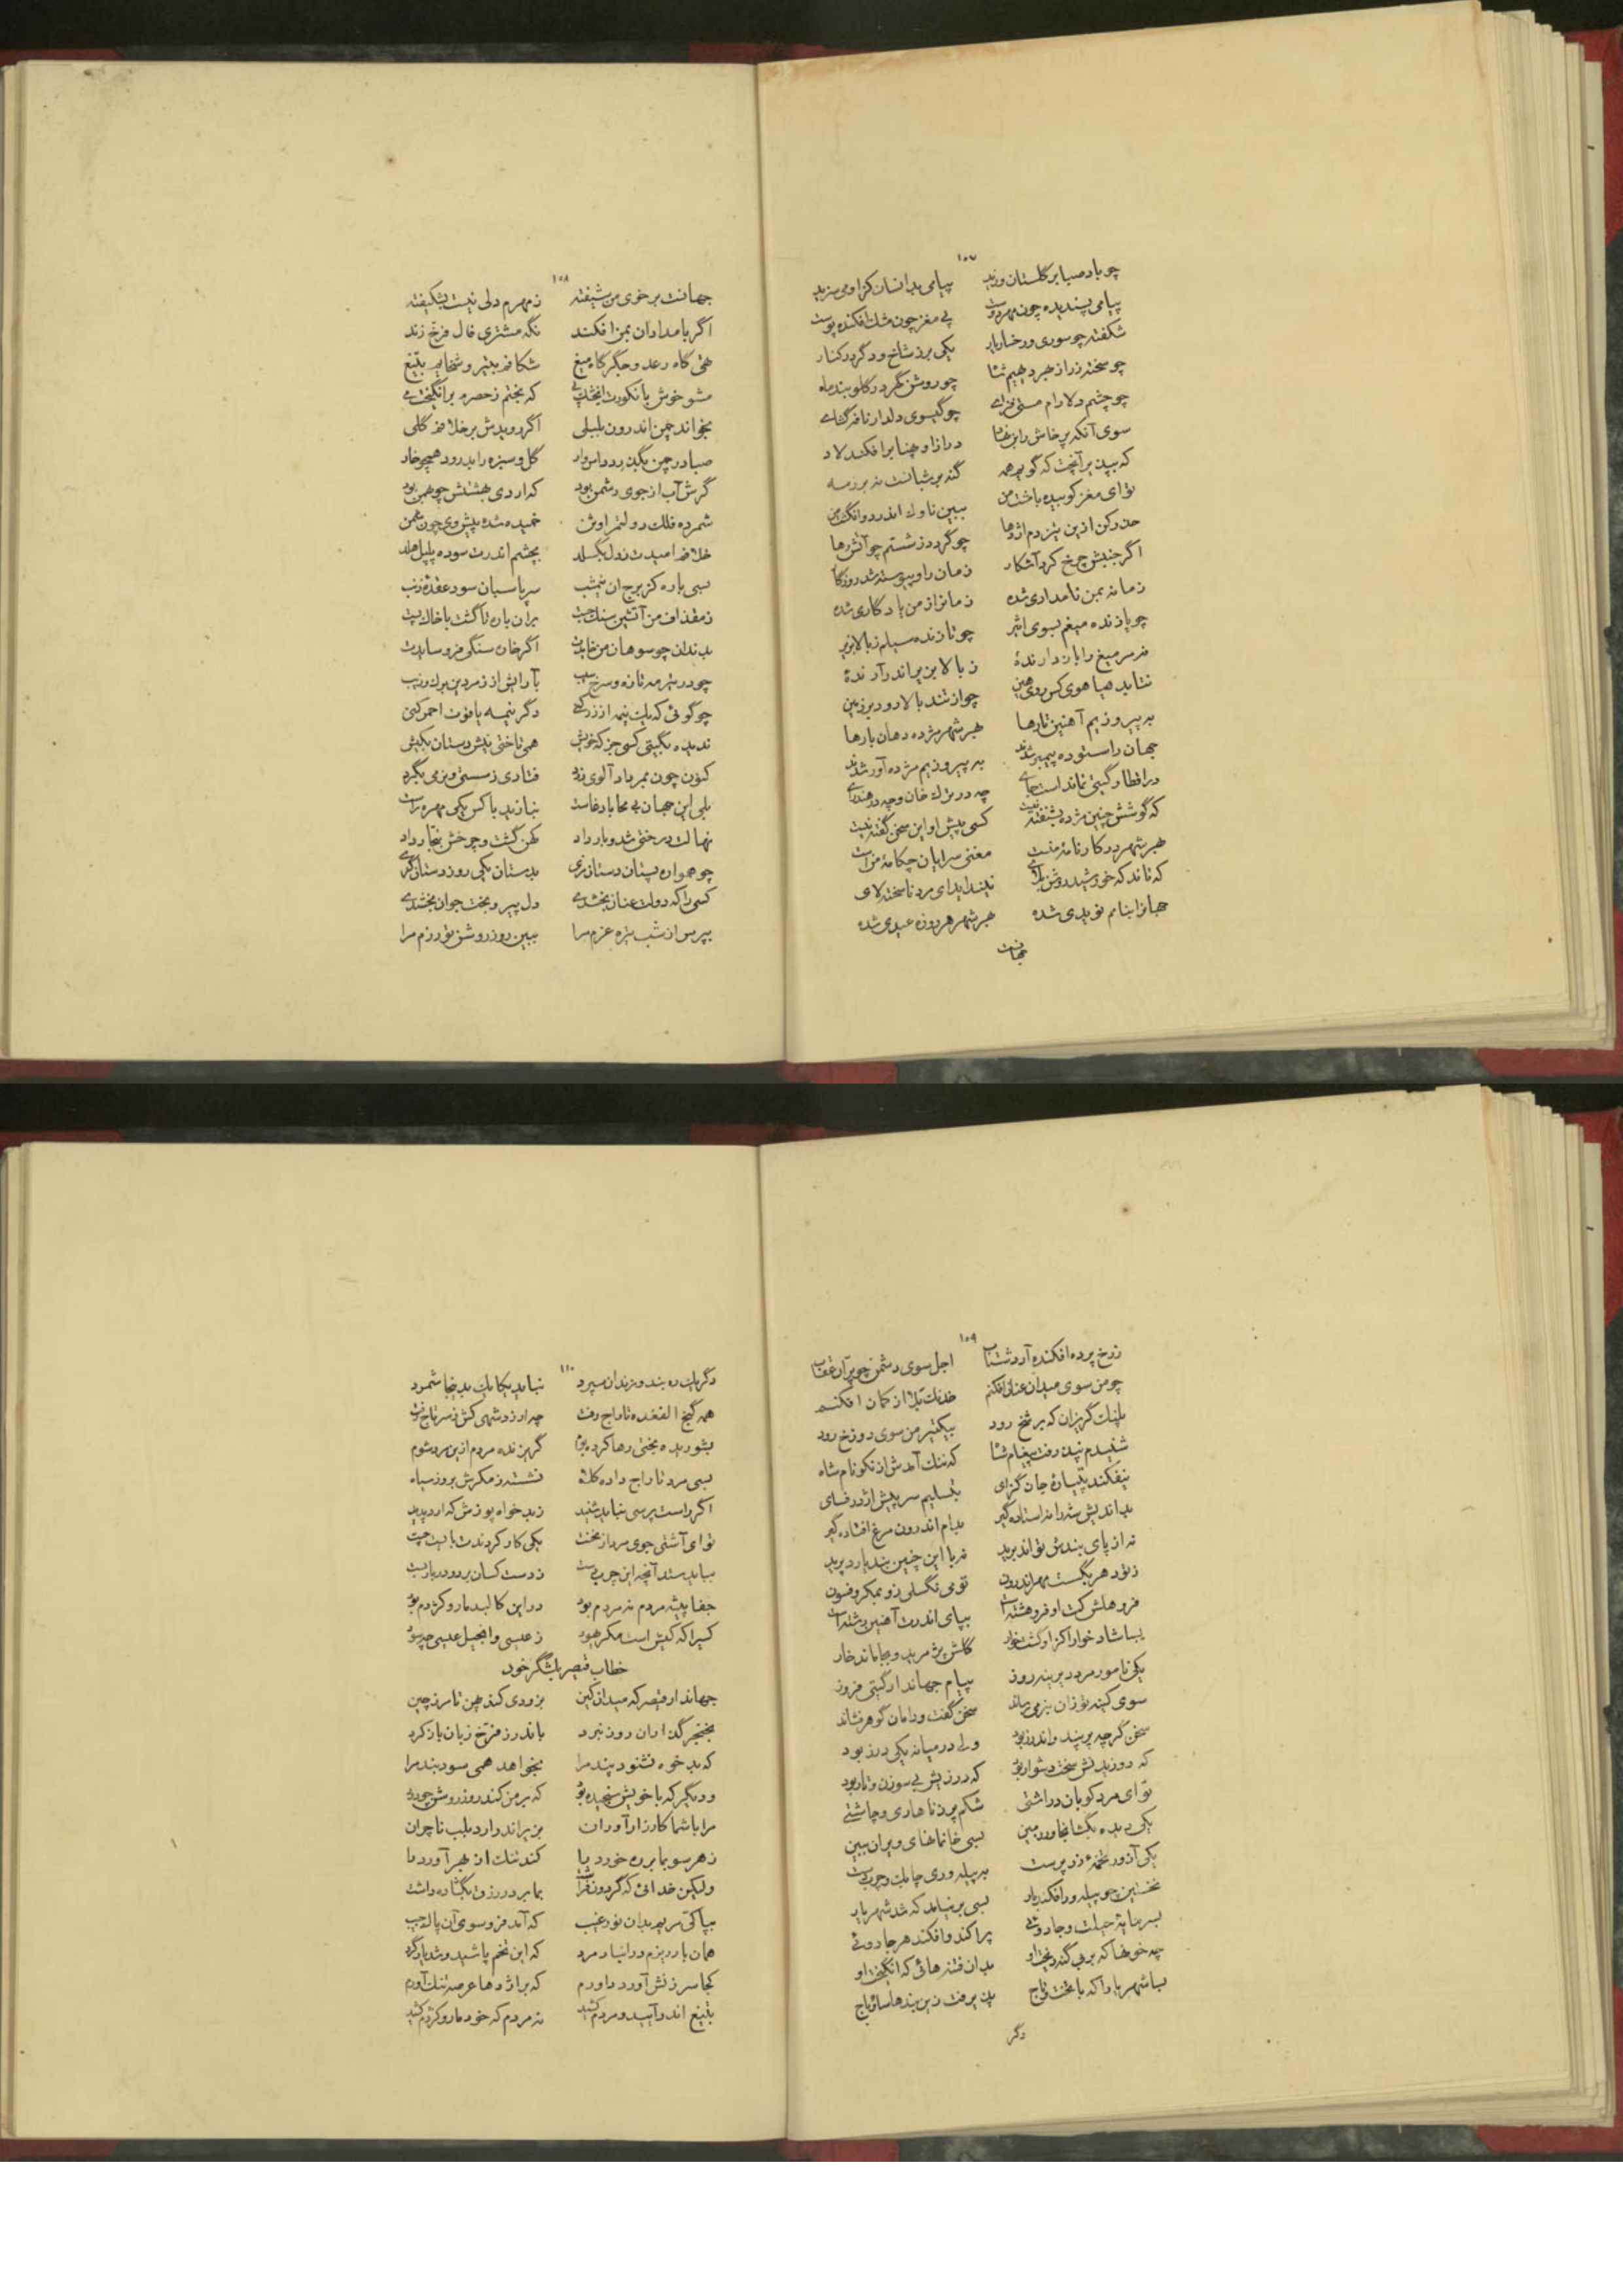 ۱۵۷
چو باد صبا بر گلستان وزید پیامی بدانسان کز او می‌سزید
پیامی پسندیده چون مهر دوست پی مغز چون مشک افکنده پوست
شکفته چو سوری و رخسار یار یکی بر ز شاخ و دگر در کنار
چو سخته زر از بهر دهیم شاه چو روشن گهر در گلوبند ماه
چو چشم دلارام مستی فزای چو گیسوی دلدار نافه گشای
سوی آنکه پرخاش را
که بیند بر آنچت که گویم همه گنه بر شبانست نه بر رمه
تو ای مغز کوبیده با خشت من ببین ناوک اندر دو انگشت من
حذر کن ازین تیز دم اژدها چو گردد ز شستم چو آتش رها
اگر جنبش چرخ کرد آشکار زمان را و پیوسته شد روزگار
زمانه بمن نامداری شده زمان از من یادگاری شده
چو یازنده میغم بسوی اثیر چو تازنده سیلم ز بالا بزیر
نه مر میغ را باز دارنده ز بالا بزیر اندر آرنده
نتابد هیاهوی کس روی چو از تند بالا رود بر زمین
به پیروزیم آهنین تارها بهر شهر مژده دهان بارها
جهان را ستوده پیمبر شدند به پیروزیم مژده آور شدند
در اقطار گیتی نماند است جای چه در ترک خان و چه در هند رای
که گوشش چنین مژده بشنفته نیست کسی پیش او این سخن گفته نیست
بهر شهر در کارنامهٔ منست مغنی سرایان چکامهٔ من است
که ناند که خورشید روشن برای نپنداید ای مرد ناسخته لای
جهان را بنامم نویدی شده بهر شهر هر روزه عیدی شده
جهانت
۱۵۸
جهانست بر خوی من شیفته ز مهرم دلی نیست بشکیفته
اگر بامدادان بمن افکند نگه مشتری فال فرخ زند
همی گاه رعد و جگرگاه میغ شکافم بتیر و شخایم بتیغ
مشو خوش بانکورت که بختم ز حصرم برانگیخت می
بخواند چمن اندرون بلبلی اگر رویدش بر خلافم گلی
صبا در چمن بگذرد داس‌وار گل و سبزه را بدرود همچو خار
گرش آب از جوی دشمن بود که اردی بهشتش چو بهمن بود
شمرده فلک دولتم را وثن خمیده شده پیش وی چون شمن
خلافم امیدت ز دل بگسلد بچشم اندرت سوده پلپل هلد
بسی باره کز برج آن نیم‌شب سر پاسبان سود عقده ذنب
ز مقذاف من آتشین سنگ جست بر آن باره تا گشت با خاک پست
بدندان چو سوهان من خایدت اگر خاره سنگی فرو سایدت
چو در تیر مه تازه و سرخ سیب بآرایش از زمردین برگ و زیب
چو گوئی که یک نیمه از زر کنی دگر نیمه یاقوت احمر کنی
ندیده بگیتی کسی جز که خویش همی تاختی پیش دستان بکیش
کنون چون نمبر باد آلوی زرد فتادی ز سستی و نرمی بگرد
بلی این جهان بی‌محابا دغاست نبازید با کس یکی مهره راست
نهالت درختی شد و بار داد کهن گشت و چرخش بنجار داد
چو همواره پستان دستان مزی بدستان یکی روز دستان گزی
کسی را که دولت عنان بخشدی دل پیر و بخت جوان بخشدی
بپرس از شب تیره عزم مرا ببین روز روشن تو رزم مرا
۱۵۹
ز رخ پرده افکنده آرد شتاب اجل سوی دشمن چو پران عقاب
چو من سوی میدان عنان افکنم خدنگ بلا از کمان افکنم
پلنگ گریزان که بر شخ رود بیک تیر من سوی دوزخ رود
شنیدم نپذرفت پیغام شاه که ننگ آمدش از نکو نام شاه
نیفکند پتیارهٔ جان گزای بتسلیم سر پیش اژدر فسای
بداندیش شه را نه استاده گیر بدام اندرون مرغ افتاده گیر
نه از پای بندش تواند برید نه با این چنین بند یارد پرید
ز تو دهر بگست مهر اندرون تو می نگسلی زو بمکر و فسون
فرو هلش کت او فرو هشته است بپای اندرت آهنین رشته است
بسا شاد خوارا کز او گشت خوار گلش پژمرید و بجا ماند خار
یکی نامور مرد دیرینه روز پیام جهاندار گیتی فروز
سوی کینه توزان بنرمی رساند سخن گفت و دامان گوهر فشاند
سخن گرچه پر پند و اندرز بود ولی در میانه یکی درز بود
که دوزیدنش سخت دشوار بود که درزیش بی سوزن و تار بود
تو ای مرد کو بان در داشتی شکم پر ز ناهاری و چاشتی
یکی دیده بگشا بخاور ببین بسی خانمانهای ویران ببین
یکی آزور تخمهٔ زر پرست به پیله وری چابک و چرب دست
نخستین چو پیله ور افکند بار بسی بر نیامد که شد شهریار
بسرمایهٔ حیلت و جادوئی پراکند و افکند هر جا دوئی
چه خونها که بر بی گنه ریخت او بدان فتنه هائی که انگیخت او
بسا شهریارا که با تخت و تاج پذیرفت زین بندها ساو و باج
دگر
۱۱۰
دگر یک ره بند و زندان سپرد نباید یکایک بدینجا شمرد
همه گنج الفغده تاراج رفت چه ارزد شهی کش ز سر تاج رفت
بشوریده بختی رها کرده بوم گریزنده مردم ازین مرد شوم
بسی مرد تاراج داده کلاه نشسته ز مکرش بروز سیاه
اگر راست پرسی نباید شنید ز بدخواه پوزش که آرد پدید
تو ای آشتی جوی مرد از نخست یکی کار کردند با بیست جست
بباید ستد آنچه این چرب دست ز دست کسان برد و در بار بست
جفا پیشه مردم نه مردم بود در این کالبد مار و کژدم بود
کسی را که کیش است مکر هبود ز عیسی و انجیل عیسی چه سود
خطاب قیصر بلشگر خود
جهاندار قیصر که میدان کین بزودی کند پهن تا مرز چین
بخنجر گذاران روز نبرد باندرز فرخ زبان باز کرد
که بدخو نشنود پند مرا بخواهد همی سود بند مرا
و دیگر که با خویش سنجیده بود که بر من کند روز روشن چو دود
مرا با شما کارزار آوران بزیر اندر آرد بلب ناچران
ز هر سو بما بر ره خورد پا کند تنگ از بهر آورد ما
ولیکن خدائی که گردون فراشت بما بر در رزق بگشاده داشت
بپاکی مریم بدان نور غیب که آمد فرو سوی آن پاک جیب
همان بار دیزم ورا نیاد مرد که این تخم پاشید و شد یاد گرد
کجا سرزنش آورد داورم که بر اژدها عرصه تنگ آورم
بتیغ اندر آیید و مردم کشید نه مردم که خود مار و کژدم کشید